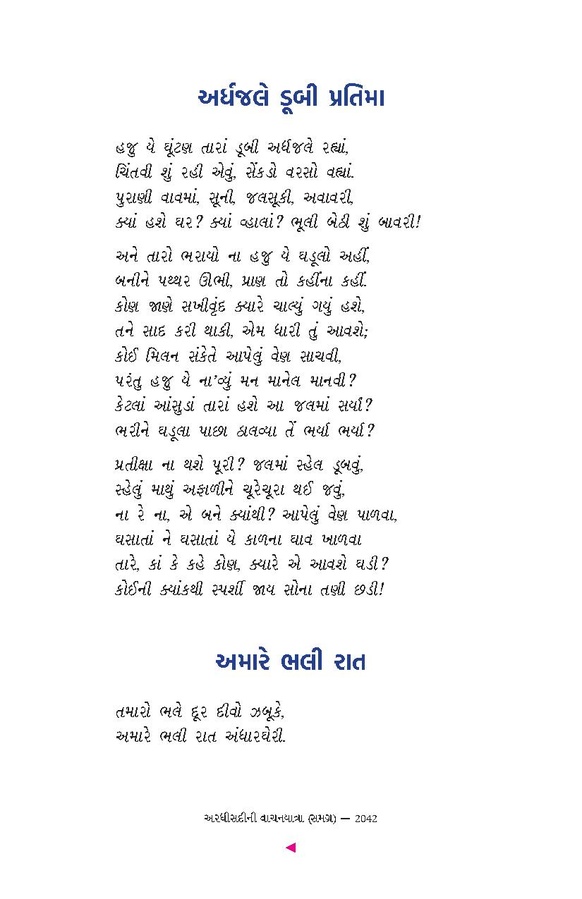 અર્ધજલે ડૂબી પ્રતિમા
હજુ યે ઘૂંટણ તારાં ડૂબી અર્ધજલે રહ્યાં,
ચિંતવી શું રહી એવું, સેંકડો વરસો વહ્યાં.
પુરાણી વાવમાં, સૂની, જલસૂકી, અવાવરી,
ક્યાં હશે ઘર? ક્યાં વ્હાલાં? ભૂલી બેઠી શું બાવરી!
અને તારો ભરાયો ના હજુ યે ઘડૂલો અહીં,
બનીને પથ્થર ઊભી, પ્રાણ તો કહીંના કહીં.
કોણ જાણે સખીવૃંદ ક્યારે ચાલ્યું ગયું હશે,
તને સાદ કરી થાકી, એમ ધારી તું આવશે;
કોઈ મિલન સંકેતે આપેલું વેણ સાચવી,
પરંતુ હજુ યે ના’વ્યું મન માનેલ માનવી?
કેટલાં આંસુડાં તારાં હશે આ જલમાં સર્યાં?
ભરીને ઘડૂલા પાછા ઠાલવ્યા તેં ભર્યા ભર્યા?
પ્રતીક્ષા ના થશે પૂરી? જલમાં સ્હેલ ડૂબવું,
સ્હેલું માથું અફાળીને ચૂરેચૂરા થઈ જવું,
ના રે ના, એ બને ક્યાંથી? આપેલું વેણ પાળવા,
ઘસાતાં ને ઘસાતાં યે કાળના ઘાવ ખાળવા
તારે, કાં કે કહે કોણ, ક્યારે એ આવશે ઘડી?
કોઈની ક્યાંકથી સ્પર્શી જાય સોના તણી છડી!
અમારે ભલી રાત
તમારો ભલે દૂર દીવો ઝબૂકે,
અમારે ભલી રાત અંધારઘેરી.
અરધીસદીની વાચનયાત્રા (સમગ્ર) — 2042